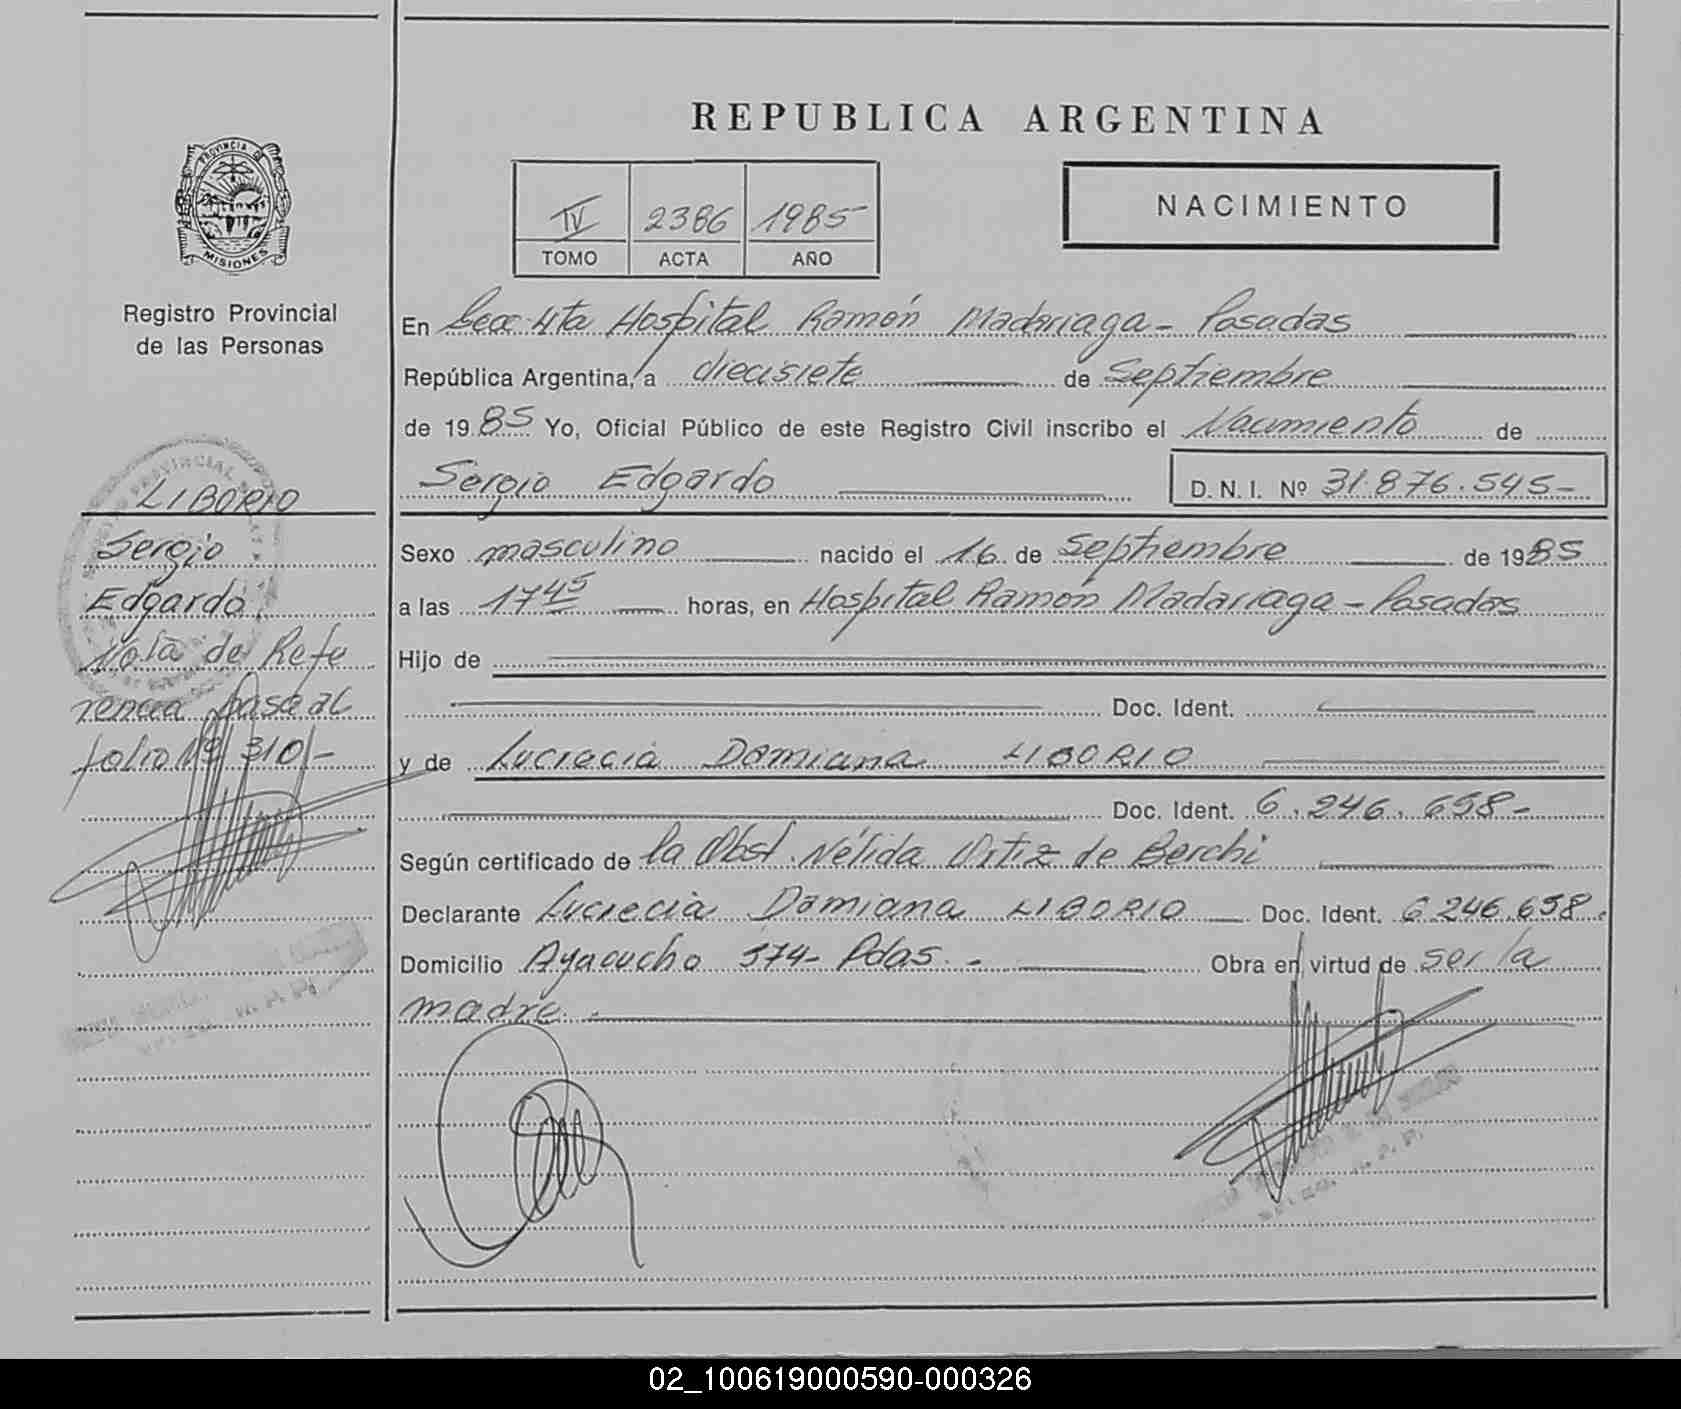 REPUBLICA ARGENTINA
PROVINCIA D
MISIONES
Registro Provincial
de las Personas
IV 2386 1985
TOMO ACTA AÑO
NACIMIENTO
En Secc 4ta Hospital Ramón Madariaga - Posadas
República Argentina, a diecisiete de Septiembre
de 1985 Yo, Oficial Público de este Registro Civil inscribo el Nacimiento de
Sergio Edgardo D.N.I. Nº 31.876.545-
Sexo masculino nacido el 16 de Septiembre de 1985
a las 17 45 horas, en Hospital Ramón Madariaga - Posadas
Hijo de
Doc. Ident.
y de Lucrecia Damiana LIBORIO
Doc. Ident. 6.246.658-
Según certificado de la Obst. Nélida Ortiz de Berchi
Declarante Lucrecia Damiana LIBORIO Doc. Ident. 6.246.658.
Domicilio Ayacucho 574- Pdas. - Obra en virtud de ser la
madre.
LIBORIO
Sergio
Edgardo
Nota de Refe
rencia pasa al
folio Nº 310/-
02_100619000590-000326